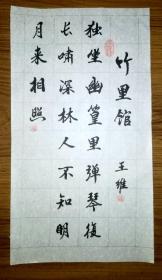 竹里馆
王维
独坐幽篁里弹琴复
长啸深林人不知明
月来相照